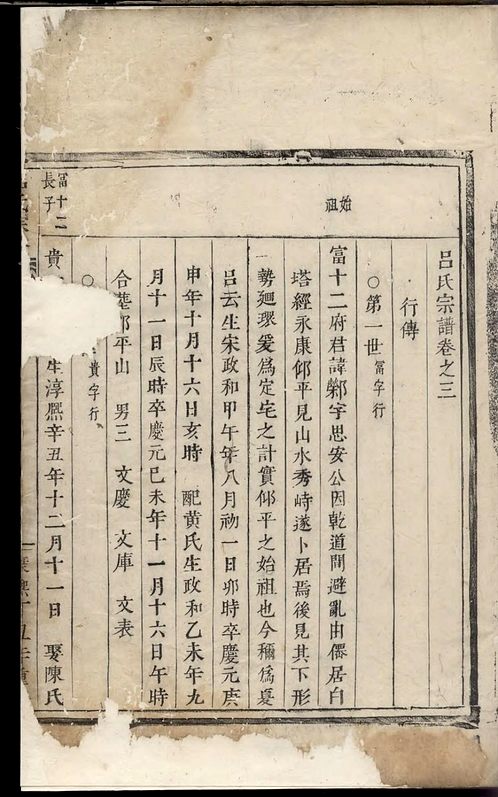 呂氏宗譜卷之三
行傳
○第一世富字行
始祖
富十二府君諱鄴字思安公因乾道間避亂由僊居白
塔經永康仰平見山水秀峙遂卜居焉後見其下形
勢廻環爰爲定宅之計實仰平之始祖也今稱爲夏
呂云生宋政和甲午年八月初一日卯時卒慶元庚
申年十月十六日亥時 配黃氏生政和乙未年九
月十一日辰時卒慶元己未年十一月十六日午時
合葬仰平山 男三 文慶 文庫 文表
○ 貴字行
富十二
長子
貴 生淳熙辛丑年十二月十一日 娶陳氏